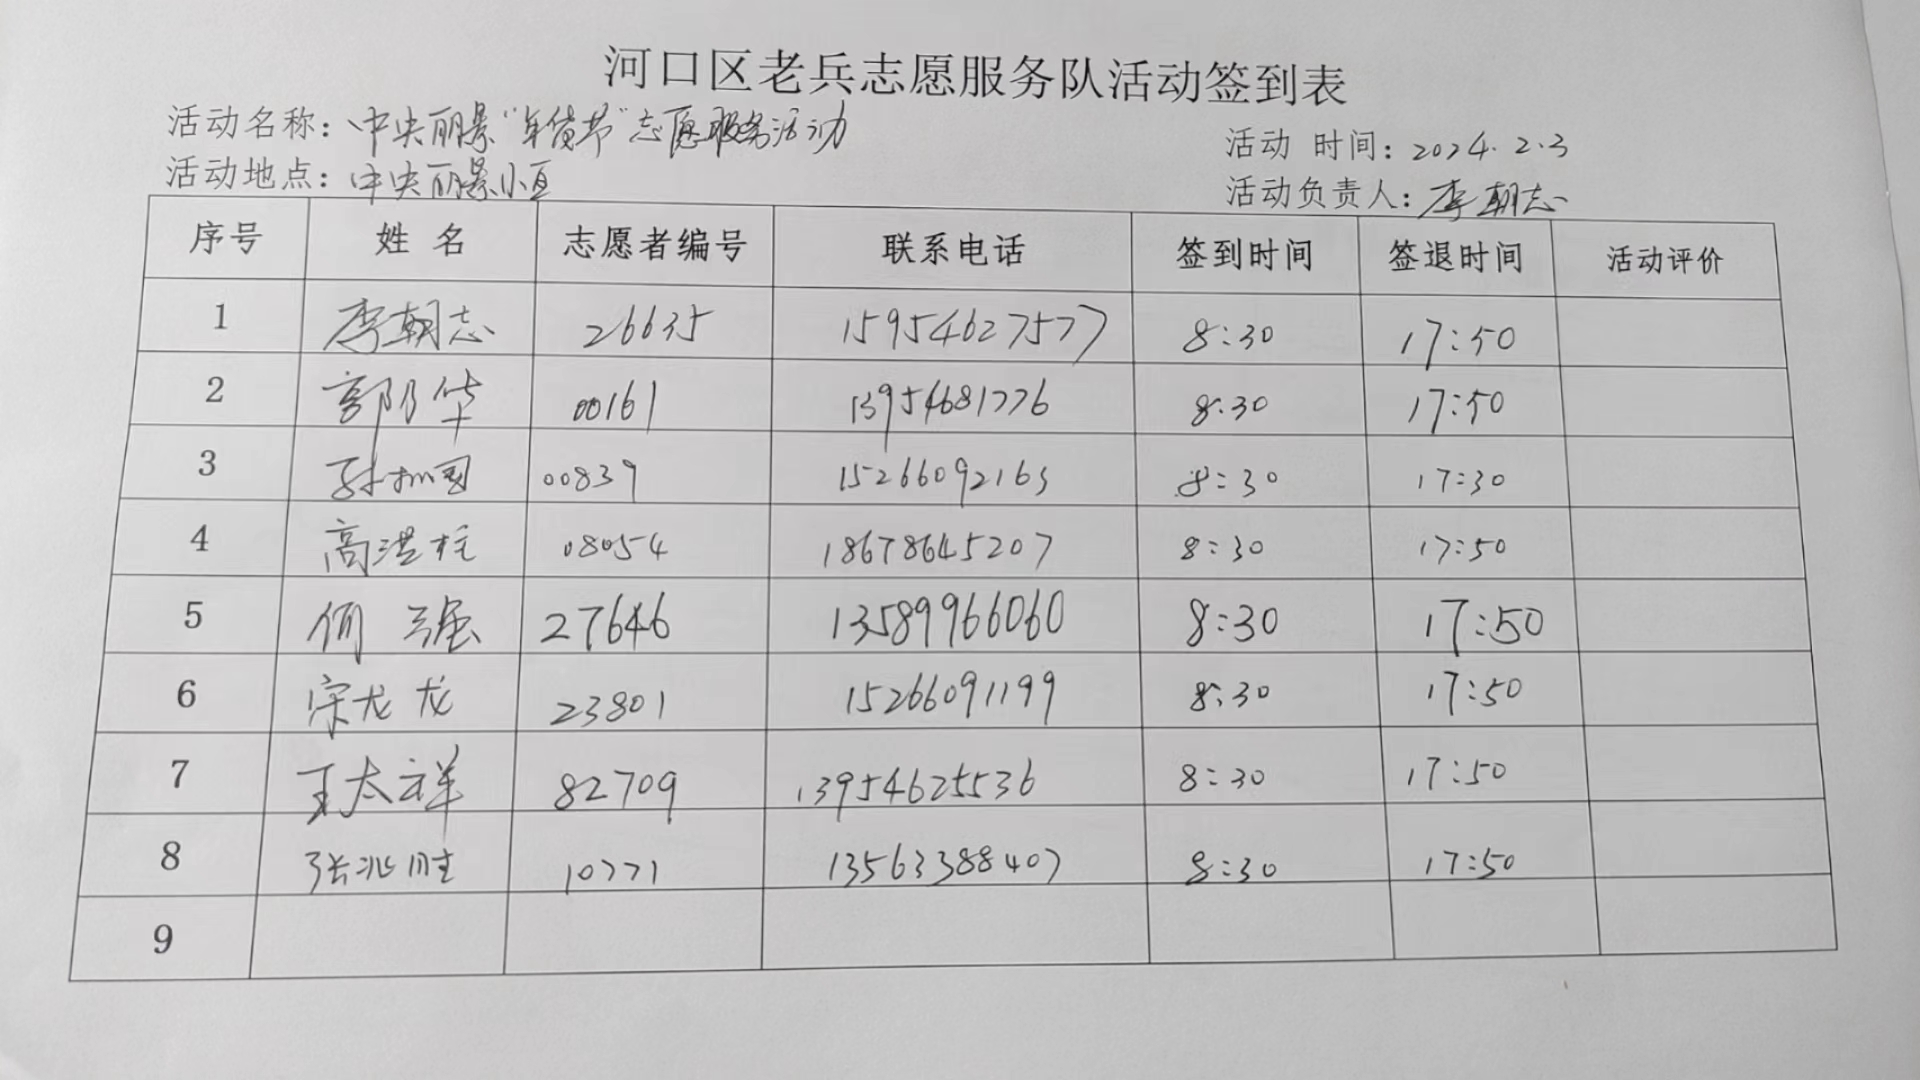 河口区老兵志愿服务队活动签到表
活动名称：中央丽景“年货节”志愿服务活动
活动时间：2024.2.3
活动地点：中央丽景小区
活动负责人：李朝志
序号 姓名 志愿者编号 联系电话 签到时间 签退时间 活动评价
1 李朝志 26635 15954627577 8:30 17:50
2 郭月华 00161 13954681776 8:30 17:50
3 00839 15266092163 8:30 17:30
4 高洪柱 08054 18678645207 8:30 17:50
5 何强 27646 13589966060 8:30 17:50
6 宋龙龙 23801 15266091199 8:30 17:50
7 王太祥 82709 13954625536 8:30 17:50
8 张兆胜 10771 13563388407 8:30 17:50
9